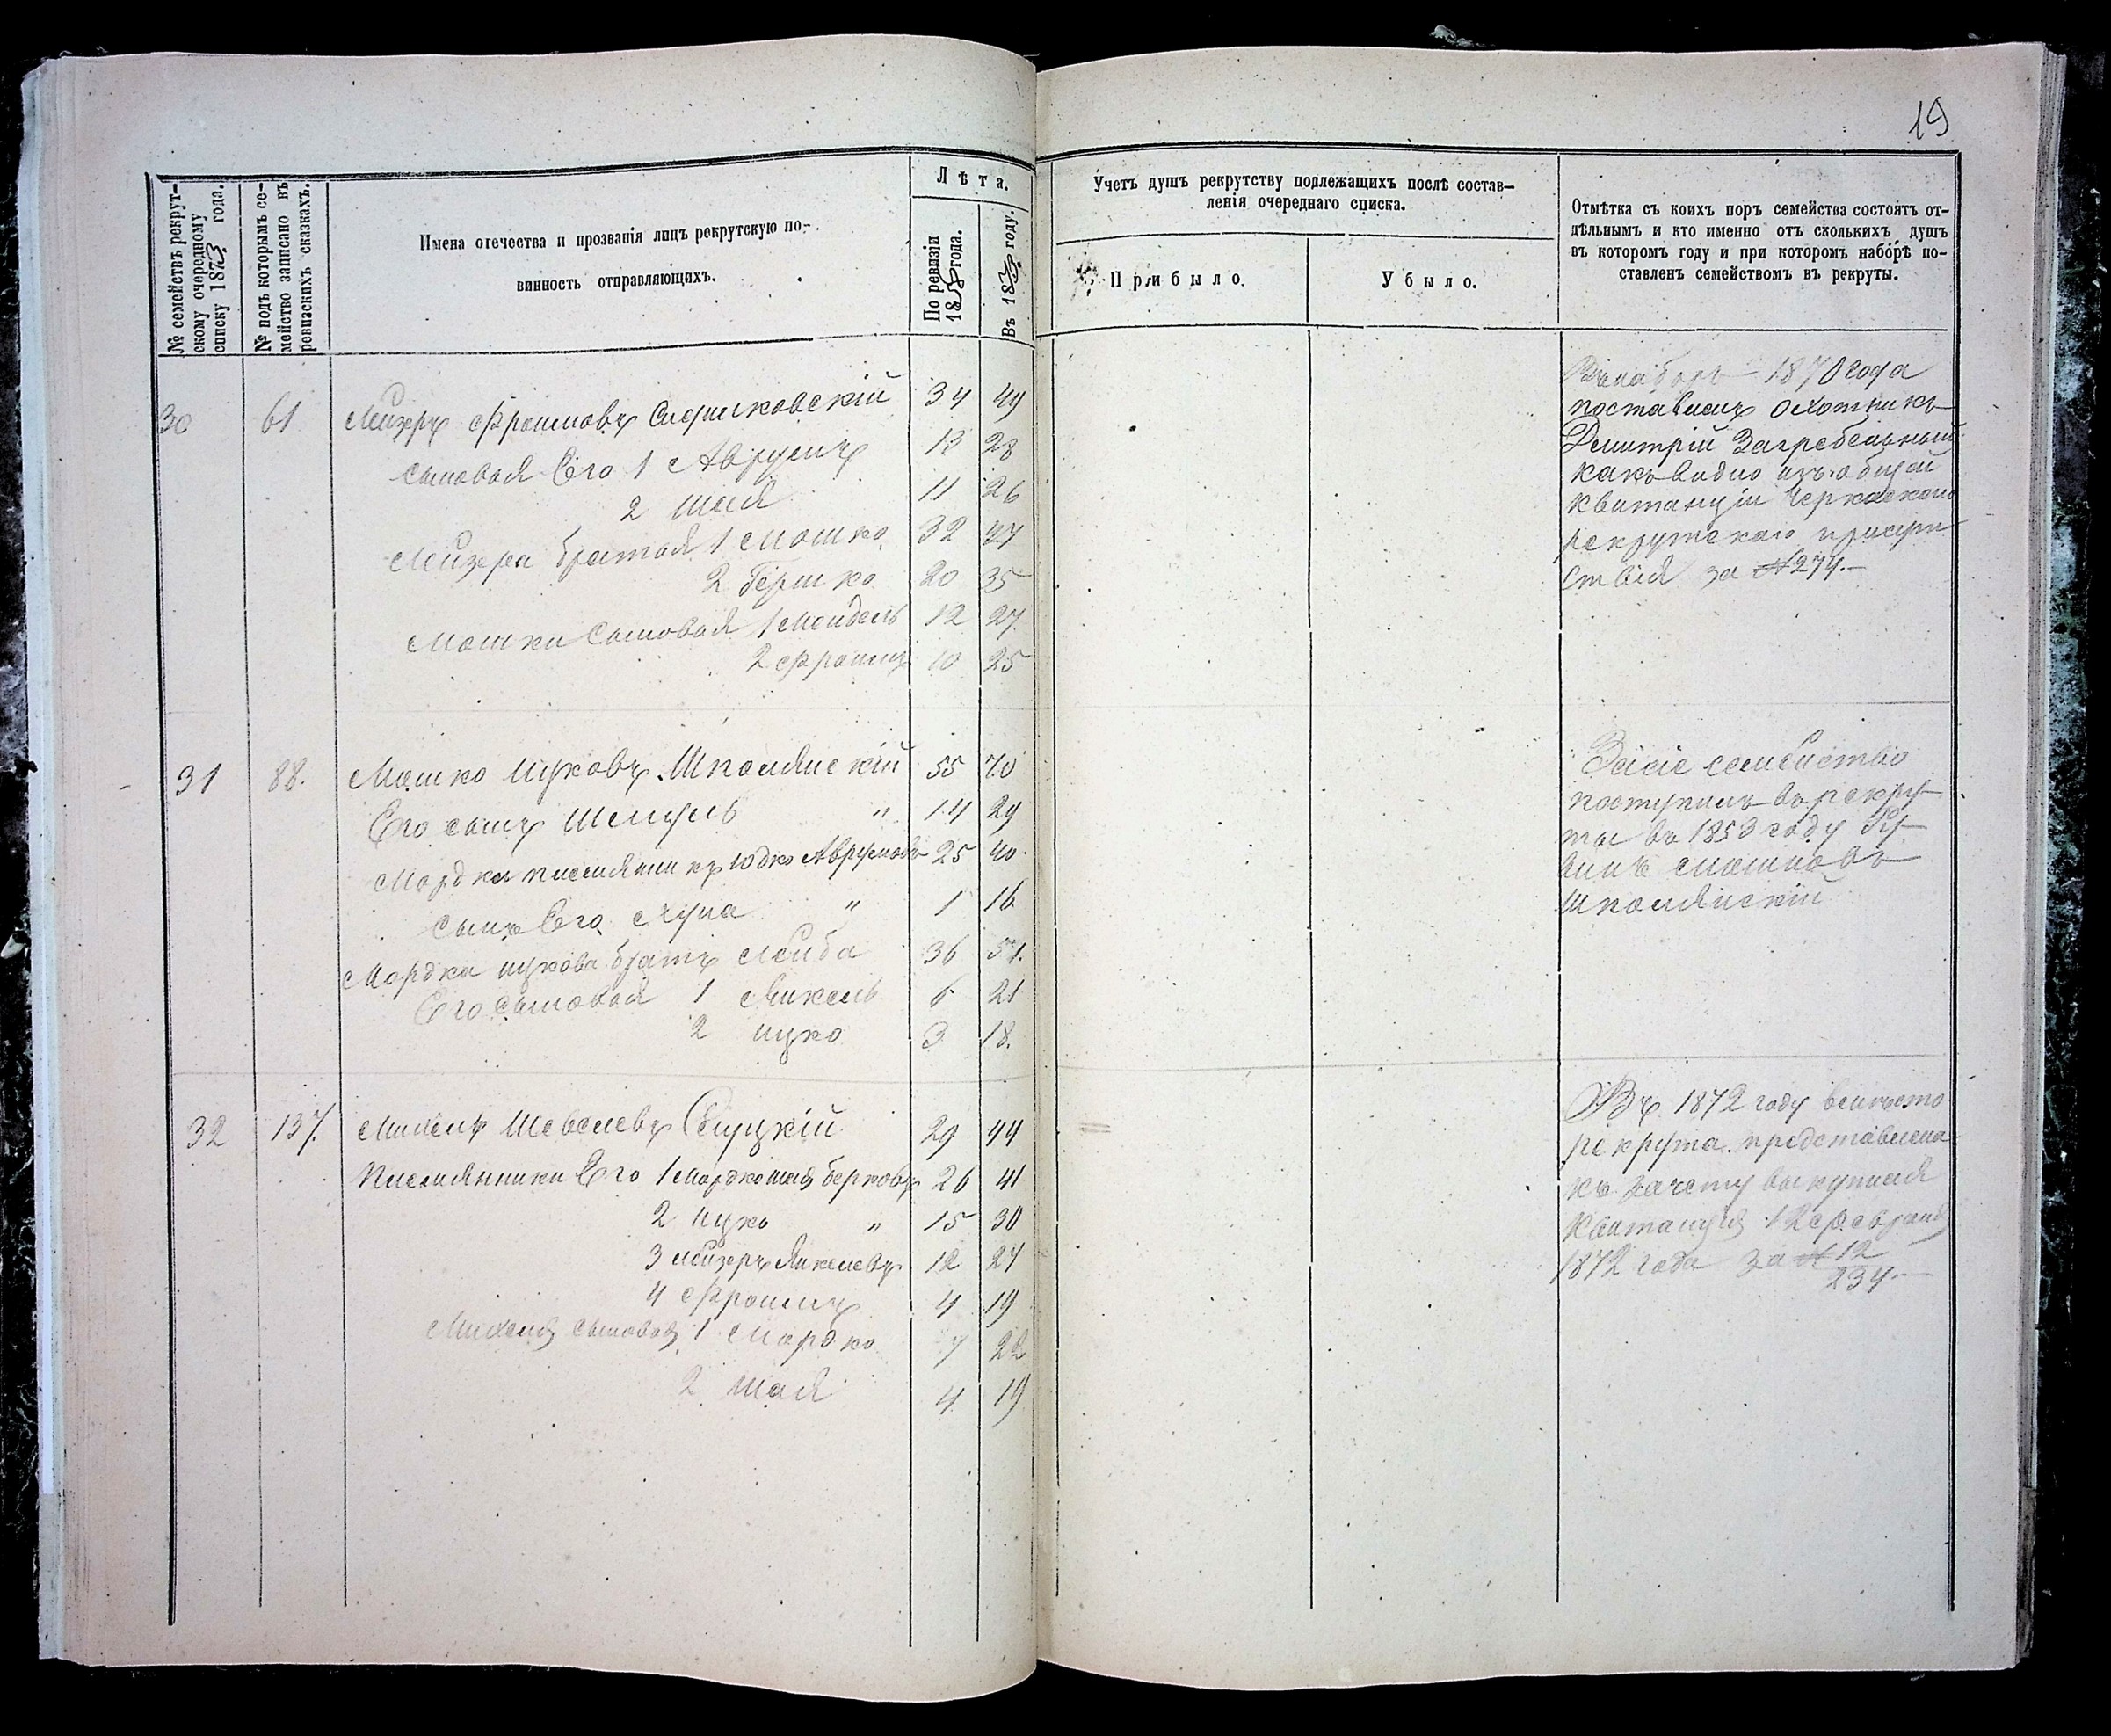 19
№ семействъ рекрут-
скому очередному
списку 1873 года.
№ подъ которымъ се-
мейство записано въ
ревизскихъ сказкахъ.
Имена отечества и прозванія лицъ рекрутскую по-
винность отправляющихъ.
Лѣта.
По ревизіи
1858 года.
Въ 1873 году.
Учетъ душъ рекрутству подлежащихъ послѣ состав-
ленія очереднаго списка.
Прибыло.
Убыло.
Отмѣтка съ коихъ поръ семейства состоятъ от-
дѣльнымъ и кто именно отъ сколькихъ душъ
въ которомъ году и при которомъ наборѣ по-
ставленъ семействомъ въ рекруты.
30 61 Лейзеръ Фроимовъ 34 49
Сыновья Его 1 Аврумъ 13 28
2 Шая 11 26
Лейзера братья 1 Мошко 32 47
2 Гершко 20 35
Мошки Сыновья 1 Мендель 12 27
2 Фроимъ 10 25
Въ наборъ 1870 года
поставленъ охотникъ
Димитрій Загребельный
какъ видно изъ общей
квитанціи Черкаскаго
рекрутскаго присут
ствія за № 274.
31 88. Мошко Ицковъ Шполянскій 55 70
Его сынъ Шмуль " 14 29
Мордки племянникъ Юдко Аврумовъ 25 40
Сынъ Его " 1 16
Мордка Ицкова братъ Лейба 36 51.
Его сыновья 1 Янкель 6 21
2 Ицко 3 18.
За сіе семейство
поступилъ въ рекру
ты въ 1853 году Ру
винъ Мошковъ
Шполянскій
32 137. Михель Шевелевъ 29 44
Племянники Его 1 Мордко Шая Берковъ 26 41
2 Ицко " 15 30
3 Лейзеръ Янкелевъ 12 27
4 Фроимъ 4 19
Михеля сыновья 1 Мордко 7 22
2 Шая 4 19
Въ 1872 году вмѣсто
рекрута представлена
къ зачету выкупная
Квитанція 12 Февраля
1872 года за № 12
234.